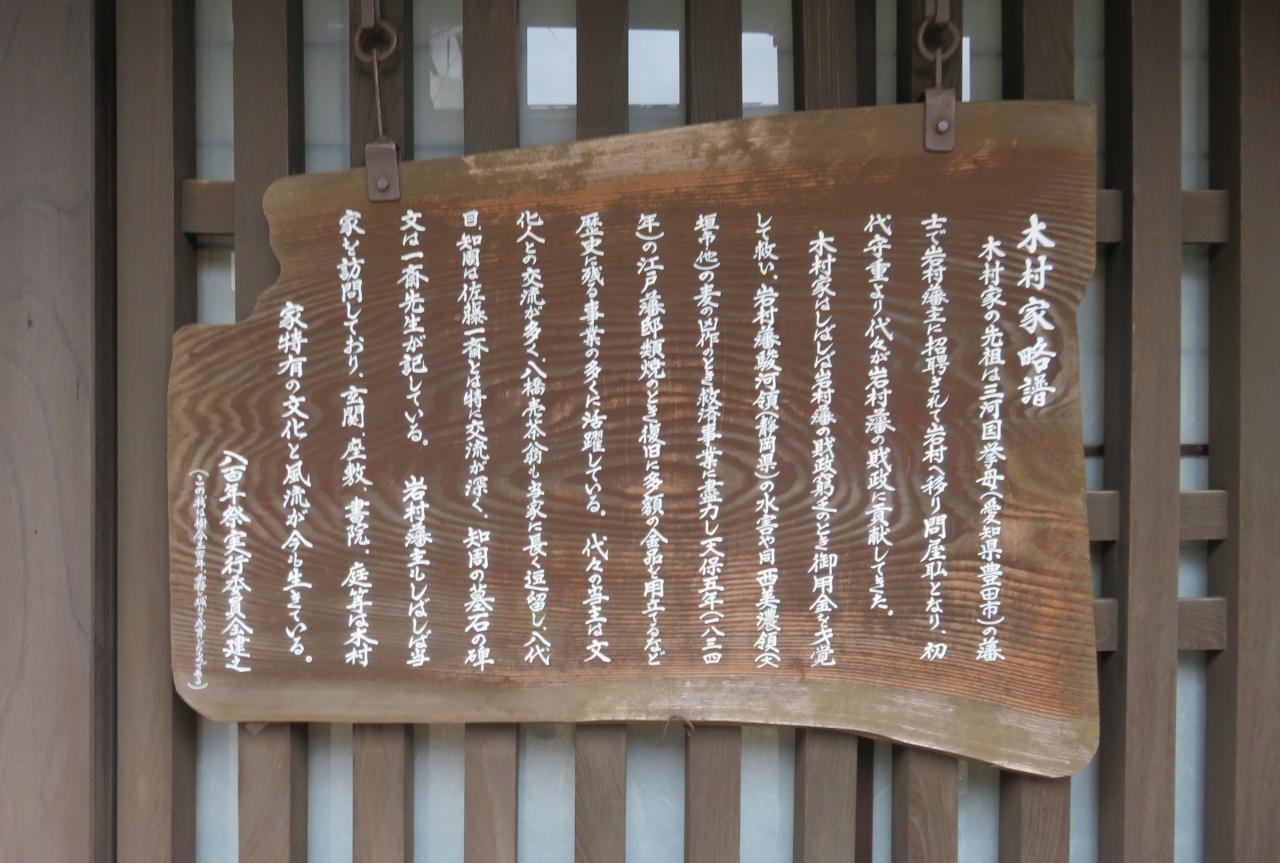 木村家略譜
木村家の先祖は三河国挙母(愛知県豊田市)の藩
士で岩村藩主に招聘されて岩村へ移り問屋耻となり、初
代守重より代々が岩村藩の財政に貢献してきた。
木村家はしばしば岩村藩の財政窮乏のとき御用金を才覚
して救い、岩村藩駿河領(静岡県)の水害や同西美濃領(大
垣市他)の麦の凶作のとき救済事業に尽力し天保五年(一八三四
年)の江戸藩邸類焼のとき復旧に多額の金品を用立てるなど
歴史に残る事業の多くに活躍している。代々の当主は文
化人との交流が多く、八橋売茶翁も当家に長く逗留し、八代
目、知周は佐藤一斎とは特に交流が深く、知周の墓石の碑
文は一斎先生が記している。岩村藩主もしばしば当
家を訪問しており、玄関、座敷、書院、庭等は木村
家特有の文化と風流が今も生きている。
八百年祭実行委員会建之